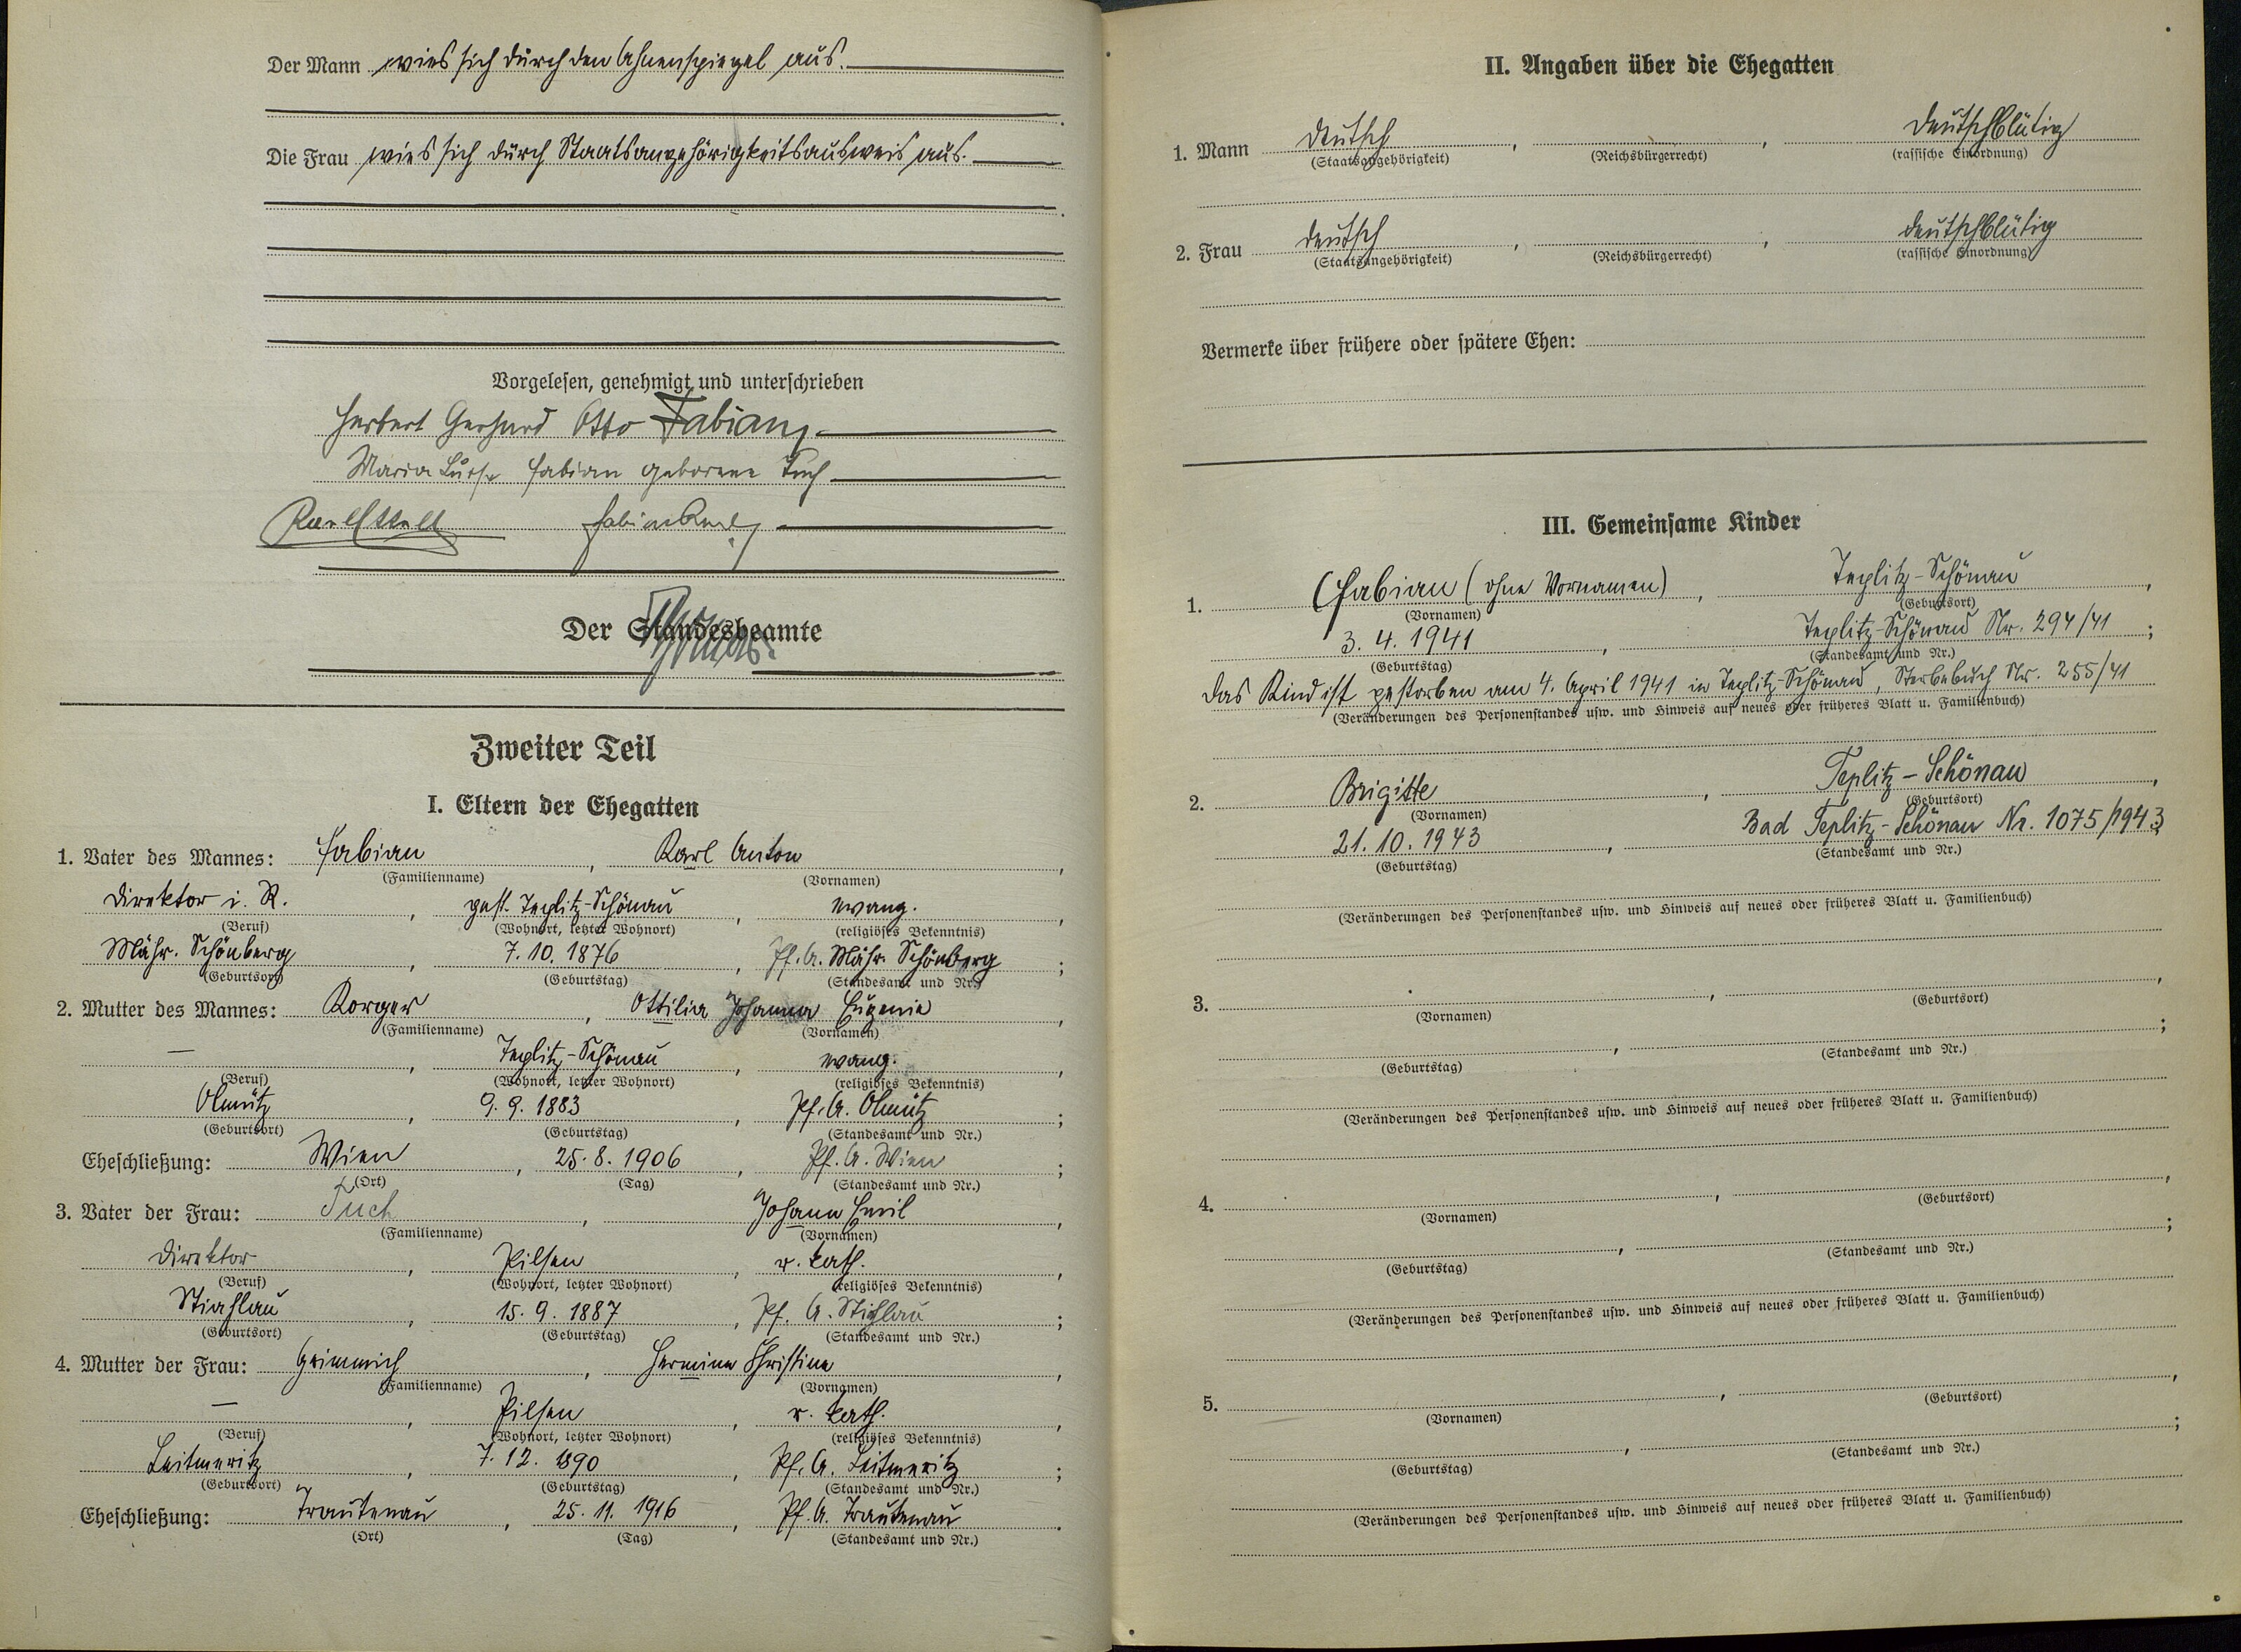 Der Mann wies sich durch den Ahnenspiegel aus.
Die Frau wies sich durch Staatsangehörigkeitsausweis aus.
Vorgelesen, genehmigt und unterschrieben
Herbert Gerhard Otto Fabian
Maria Luise Fabian geborene Tuch
Fabian Karl
Der Standesbeamte
Zweiter Teil
I. Eltern der Ehegatten
1. Vater des Mannes: Fabian, Karl Anton,
(Familienname) (Vornamen)
Direktor i. R., gest. Teplitz-Schönau, evang.,
(Beruf) (Wohnort, letzter Wohnort) (religiöses Bekenntnis)
Mähr. Schönberg, 7. 10. 1876, Pf. A. Mähr. Schönberg;
(Geburtsort) (Geburtstag) (Standesamt und Nr.)
2. Mutter des Mannes: Korger, Ottilia Johanna Eugenia,
(Familienname) (Vornamen)
—, Teplitz-Schönau, evang.,
(Beruf) (Wohnort, letzter Wohnort) (religiöses Bekenntnis)
Olmütz, 9. 9. 1883, Pf. A. Olmütz;
(Geburtsort) (Geburtstag) (Standesamt und Nr.)
Eheschließung: Wien, 25. 8. 1906, Pf. A. Wien;
(Ort) (Tag) (Standesamt und Nr.)
3. Vater der Frau: Tuch, Johann Emil,
(Familienname) (Vornamen)
Direktor, Pilsen, r. kath.,
(Beruf) (Wohnort, letzter Wohnort) (religiöses Bekenntnis)
Stiahlau, 15. 9. 1887, Pf. A. Stihlau;
(Geburtsort) (Geburtstag) (Standesamt und Nr.)
4. Mutter der Frau: Grimmich, Hermine Christine,
(Familienname) (Vornamen)
—, Pilsen, r. kath.,
(Beruf) (Wohnort, letzter Wohnort) (religiöses Bekenntnis)
Leitmeritz, 7. 12. 1890, Pf. A. Leitmeritz;
(Geburtsort) (Geburtstag) (Standesamt und Nr.)
Eheschließung: Trautenau, 25. 11. 1916, Pf. A. Trautenau.
(Ort) (Tag) (Standesamt und Nr.)
II. Angaben über die Ehegatten
1. Mann deutsch, , deutschblütig
(Staatsangehörigkeit) (Reichsbürgerrecht) (rassische Einordnung)
2. Frau deutsch, , deutschblütig
(Staatsangehörigkeit) (Reichsbürgerrecht) (rassische Einordnung)
Vermerke über frühere oder spätere Ehen:
III. Gemeinsame Kinder
1. (Fabian (ohne Vornamen), Teplitz-Schönau,
(Vornamen) (Geburtsort)
3. 4. 1941, Teplitz-Schönau Nr. 294/41;
(Geburtstag) (Standesamt und Nr.)
Das Kind ist gestorben am 4. April 1941 in Teplitz-Schönau, Sterbebuch Nr. 255/41
(Veränderungen des Personenstandes usw. und Hinweis auf neues oder früheres Blatt u. Familienbuch)
2. Brigitte, Teplitz-Schönau,
(Vornamen) (Geburtsort)
21. 10. 1943, Bad Teplitz-Schönau Nr. 1075/1943;
(Geburtstag) (Standesamt und Nr.)
(Veränderungen des Personenstandes usw. und Hinweis auf neues oder früheres Blatt u. Familienbuch)
3. , ,
(Vornamen) (Geburtsort)
, ;
(Geburtstag) (Standesamt und Nr.)
(Veränderungen des Personenstandes usw. und Hinweis auf neues oder früheres Blatt u. Familienbuch)
4. , ,
(Vornamen) (Geburtsort)
, ;
(Geburtstag) (Standesamt und Nr.)
(Veränderungen des Personenstandes usw. und Hinweis auf neues oder früheres Blatt u. Familienbuch)
5. , ,
(Vornamen) (Geburtsort)
, ;
(Geburtstag) (Standesamt und Nr.)
(Veränderungen des Personenstandes usw. und Hinweis auf neues oder früheres Blatt u. Familienbuch)